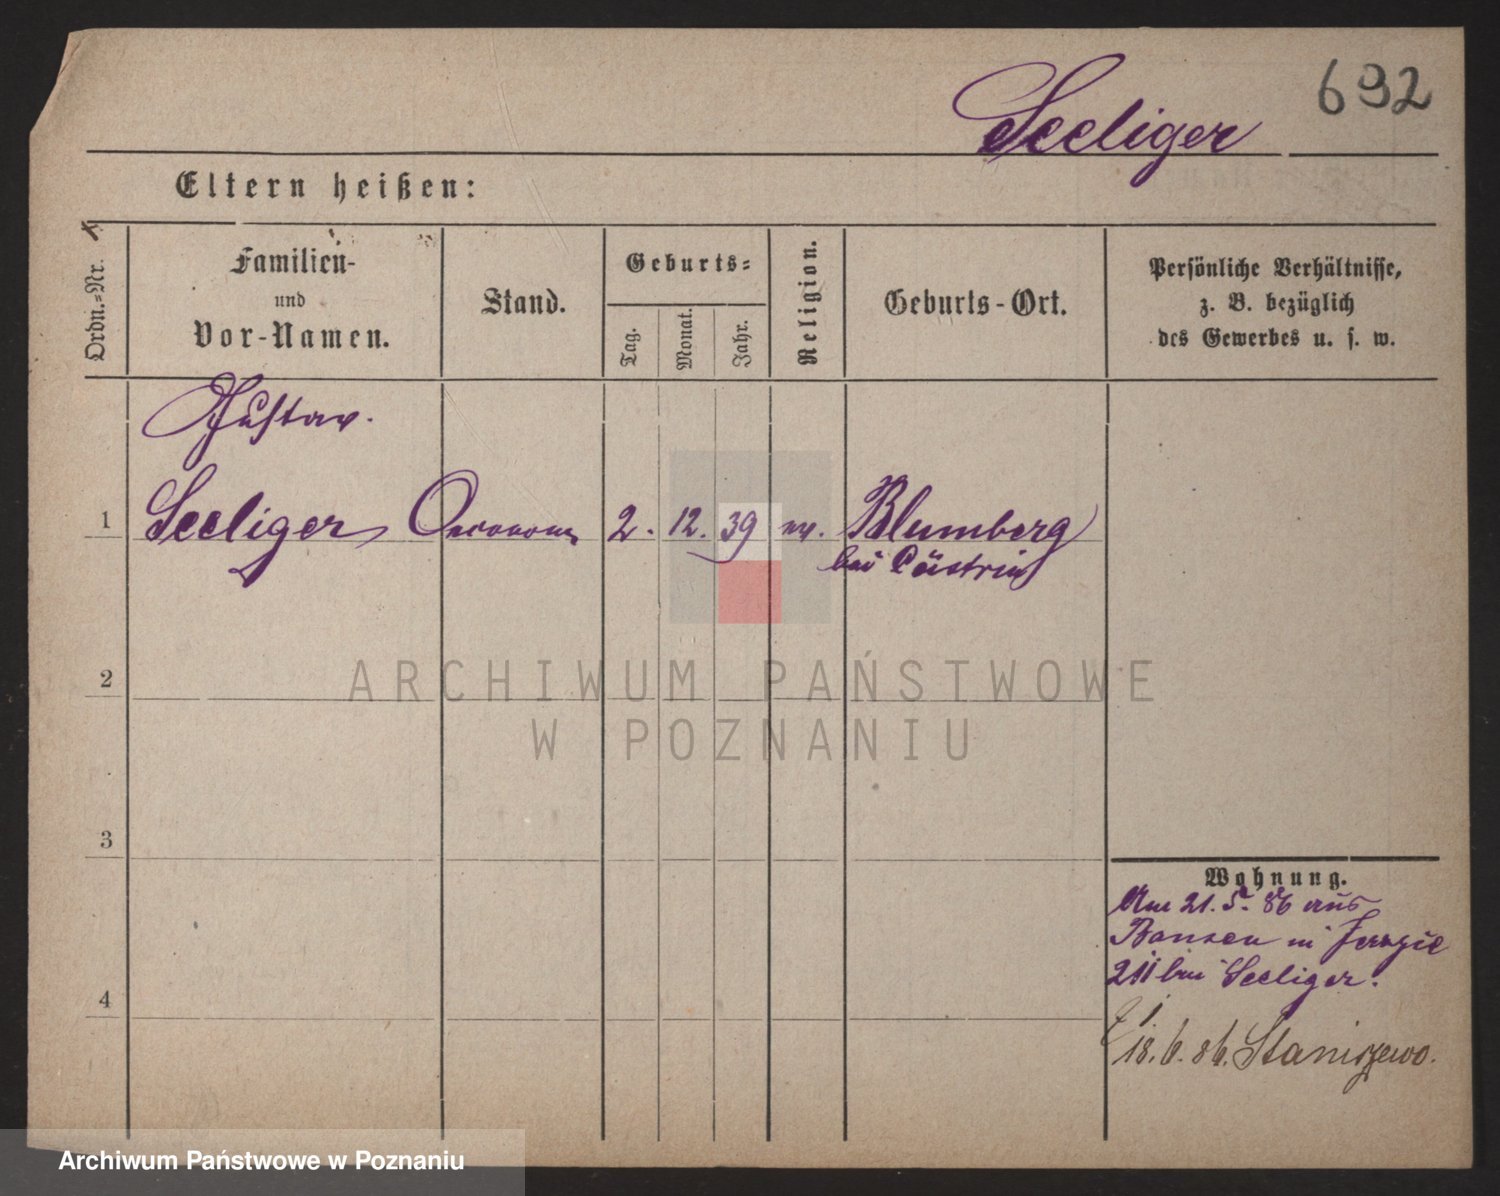 692
Seeliger
Eltern heißen:
Ordn.=Nr.
Familien-
und
Vor-Namen.
Stand.
Geburts=
Tag.
Monat.
Jahr.
Religion.
Geburts-Ort.
Persönliche Verhältnisse,
z. B. bezüglich
des Gewerbes u. s. w.
Gustav.
1 Seeliger Oeconom 2. 12. 39 ev. Blumberg
bei Cüstrin
2
3
4
Wohnung.
Am 21. 5. 86 aus
in Jerzyce
bei Seeliger.
18. 6. 86. Staniszewo.
ARCHIWUM PAŃSTWOWE
W POZNANIU
Archiwum Państwowe w Poznaniu